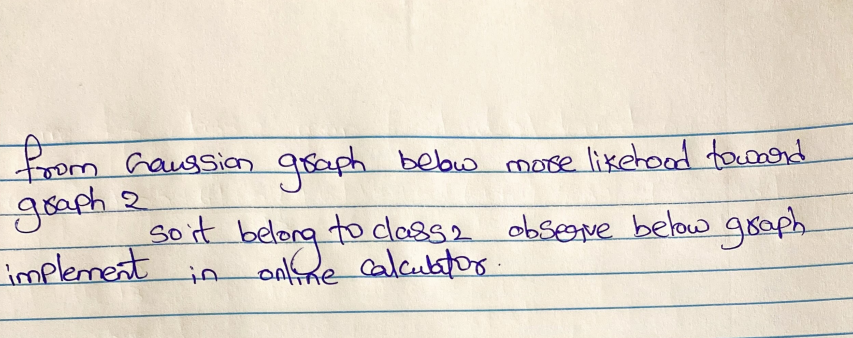 from Gaussian graph below more likehood toward
graph 2
so it belong to class 2 observe below graph
implement in online calculator.